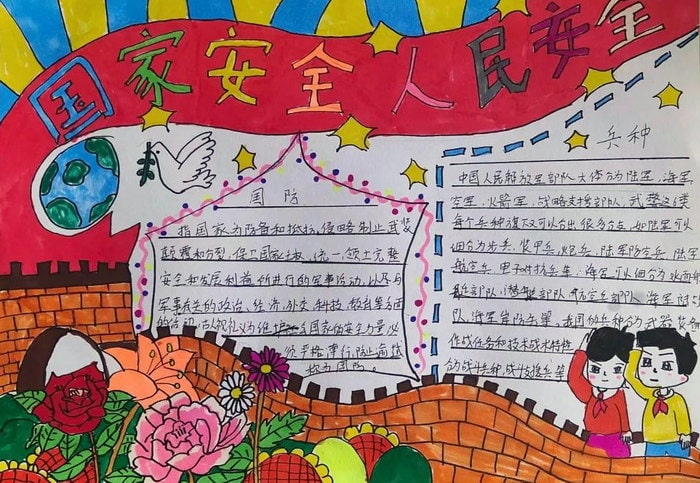 国家安全人民安全
国防
指国家为防备和抵抗,侵略制止武装
颠覆和分裂,保卫国家主权、统一、领土完整
安全和发展利益所进行的军事活动,以及与
军事有关的政治、经济、外交、科技、教育等方面
的活动 国家的安全力量必
须严格奉行,防止
称为国防。
兵种
中国人民解放军部队大体分为陆军、海军
空军、火箭军、战略支援部队、武警这6类
每个兵种旗下又可以分出很多分支,如陆军可以
细分为步兵、装甲兵、炮兵、陆军防空兵、陆军
航空兵、电子对抗兵等。海军可以细分为水面舰
艇部队、潜艇部队、航空兵部队、海军陆
队、海军岸防兵等。我国的兵种分为武器装
作战任务和技术战术特性
分为战斗兵种,战斗支援兵等